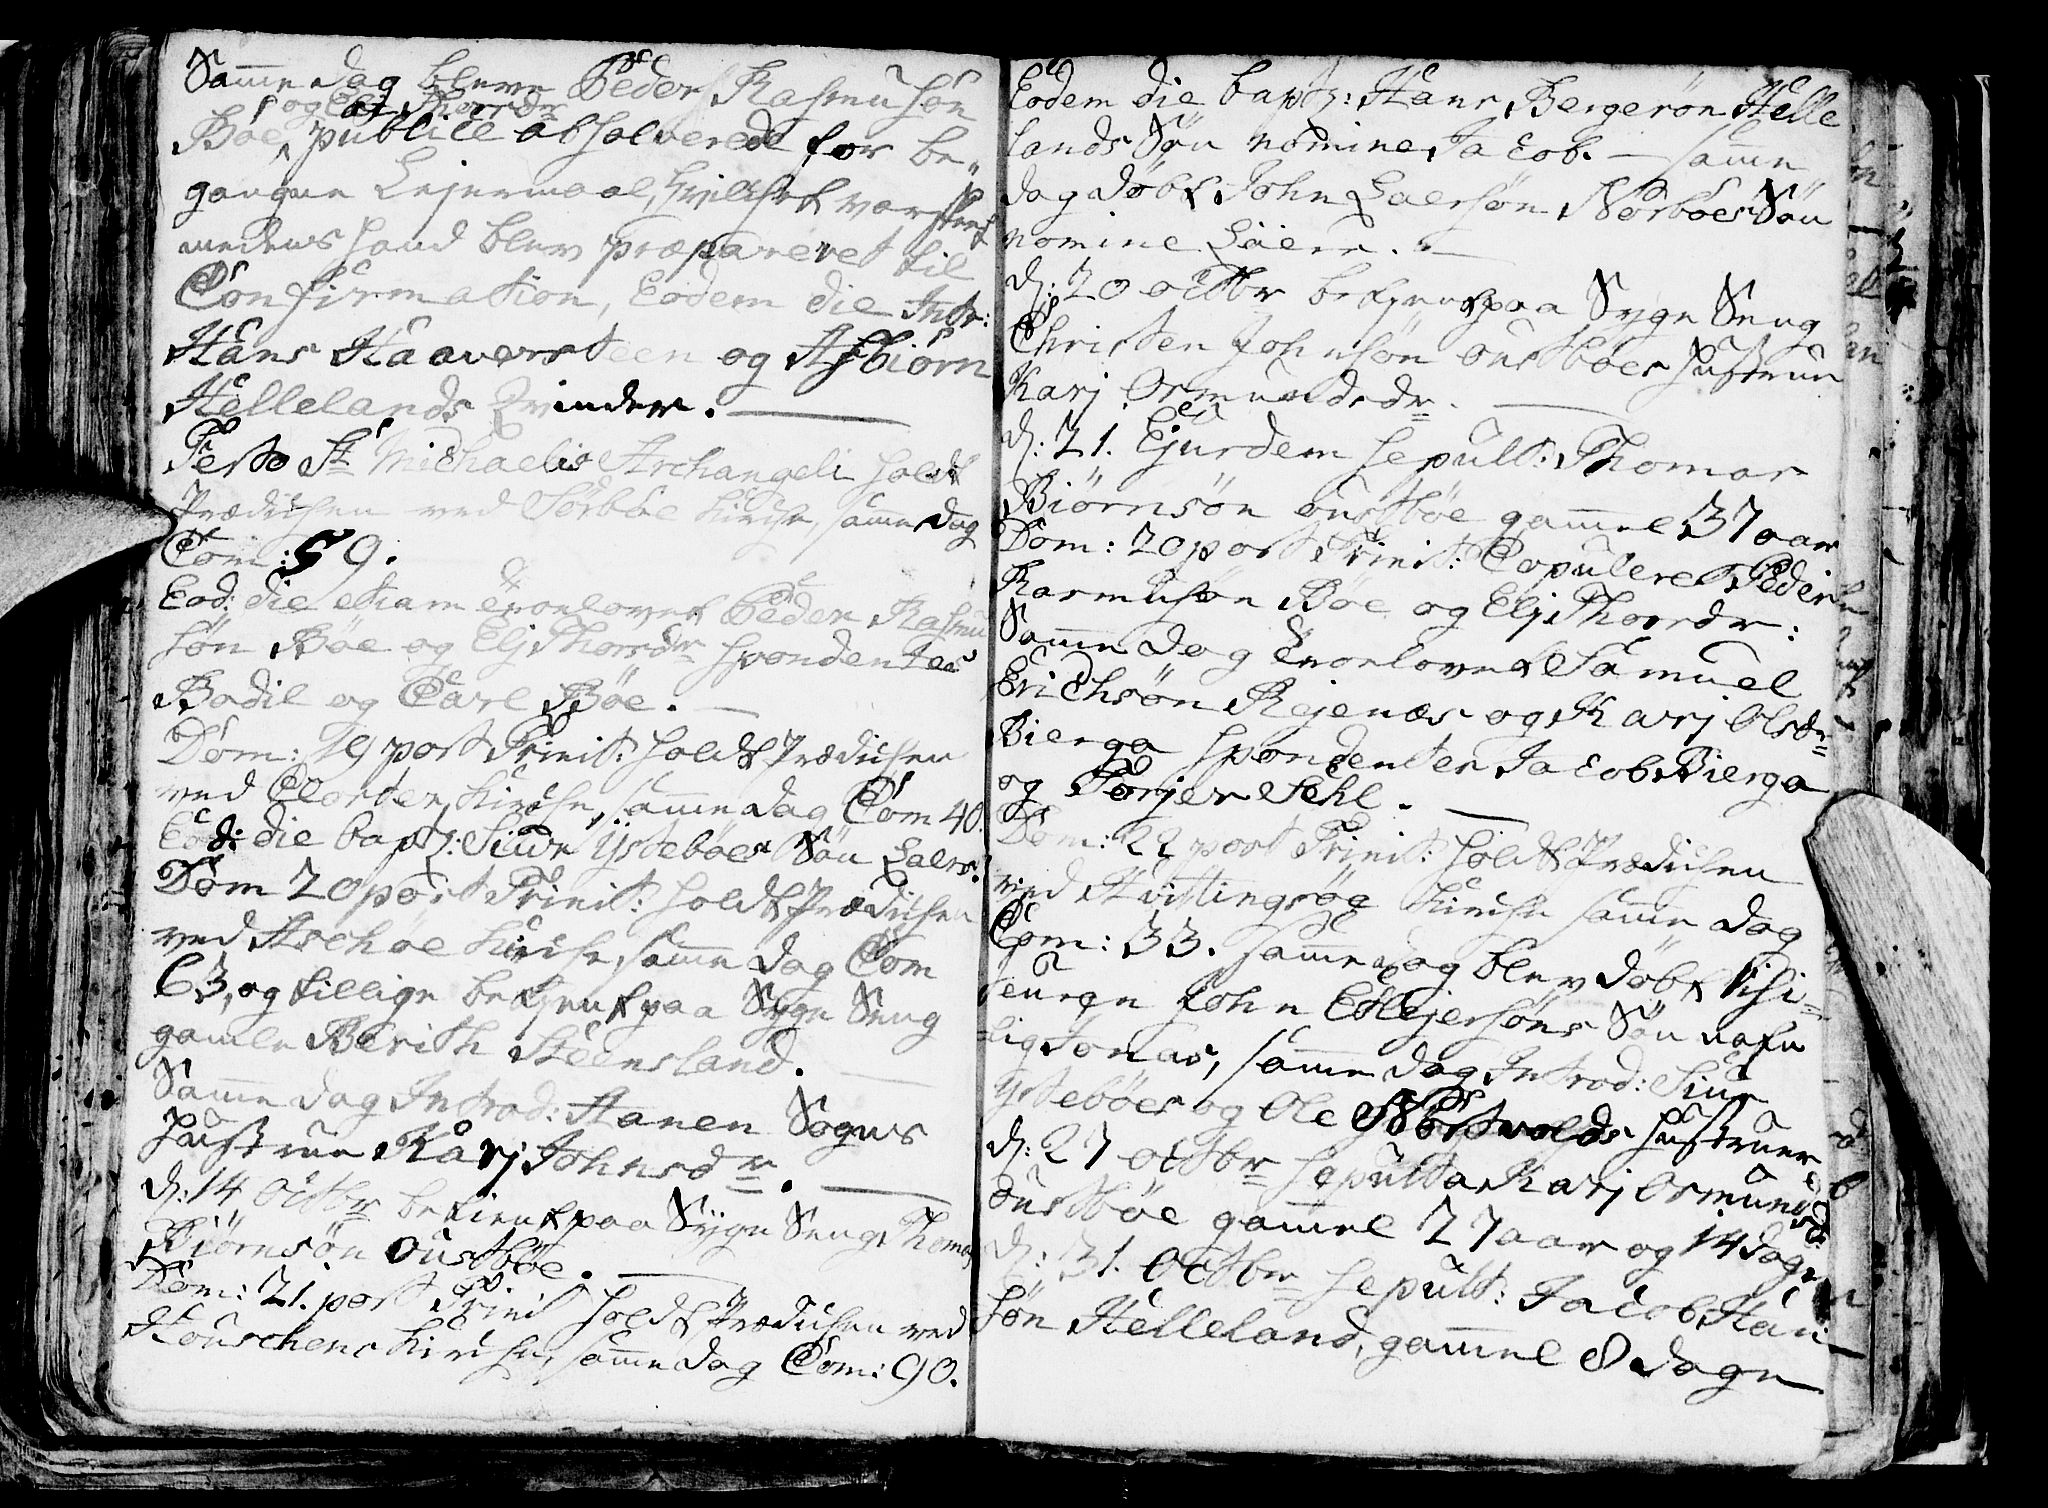 Samme dag bleve Peder Rasmusøn
og Elj Thorsdr
Bøe publice absolverede for be-
gangne Lejermaal, hvilchet
medens hand blev præpareret til
Confirmation, Eodem die Intr:
Hans Haaversteen og Asbiørn
Hellelands Qvinder.
Festo St Michaelis Archangeli holdt
Prædichen ved Sørbøe Kirche, samme dag
Com: 59.
Eod: die etiam Trorlovet Peder Rasmu
søn Bøe og Elj Thorsdr spondentes
Bodil og Carl Bøe.
Dom: 19 post Trinit: holdt Prædichen
ved Closter Kirche, samme dag Com 40.
Eod: die bapz: Siur Ystebøes Søn Laers.
Dom 20 post Trinit: holdt Prædichen
ved Aschøe Kirche, samme dag Com
63, og tillige betient paa Syge Seng
gamle Berith Steensland.
Samme dag Introd: Hanen Sognes
Hustrue Karj Johnsdr.
d: 14 Octbr betient paa Syge Seng Thomas
Biørnsøn Oustbøe.
Dom: 21. post Trinit holdt Prædichen ved
Houschens Kirche, samme dag Com: 90.
Eodem die bapz: Hans Bergesøn Helle
lands Søn nomine Jacob. — samme
dag døbt John Laersøn Nørbøes Søn
nomine Laers.
d: 20 octbr betient paa Syge Seng
Christen Johnsøn Oustbøes Hustrue
Karj Ormundsdr.
d: 21. Ejusdem sepult: Thomas
Biørnsøn oustbøe gammel 37 aar
Dom: 20 post Trinit: Copuleret Peder
Rasmusøn Bøe og Elj Thorsdr:
Samme dag Trorlovet Samuel
Erichsøn Rejenæs og Karj Olsdr
Bierga spondenter Jacob Bierga
og Torjer Sehl.
Dom: 22 post Trinit: holdt Prædichen
ved Hvitingsøe Kirche samme dag
Com: 33. samme dag blev døbt
John Søn nafn
lig Jonas, samme dag Introd: Siur
Ystebøes og Ole Hustruer
d: 27 octbr sepulta Karj Ormundsd:
Oustbøe gammel 27 aar og 14 dage
d: 31. Octbr sepult: Jacob Han
søn Helleland, gammel 8 dage